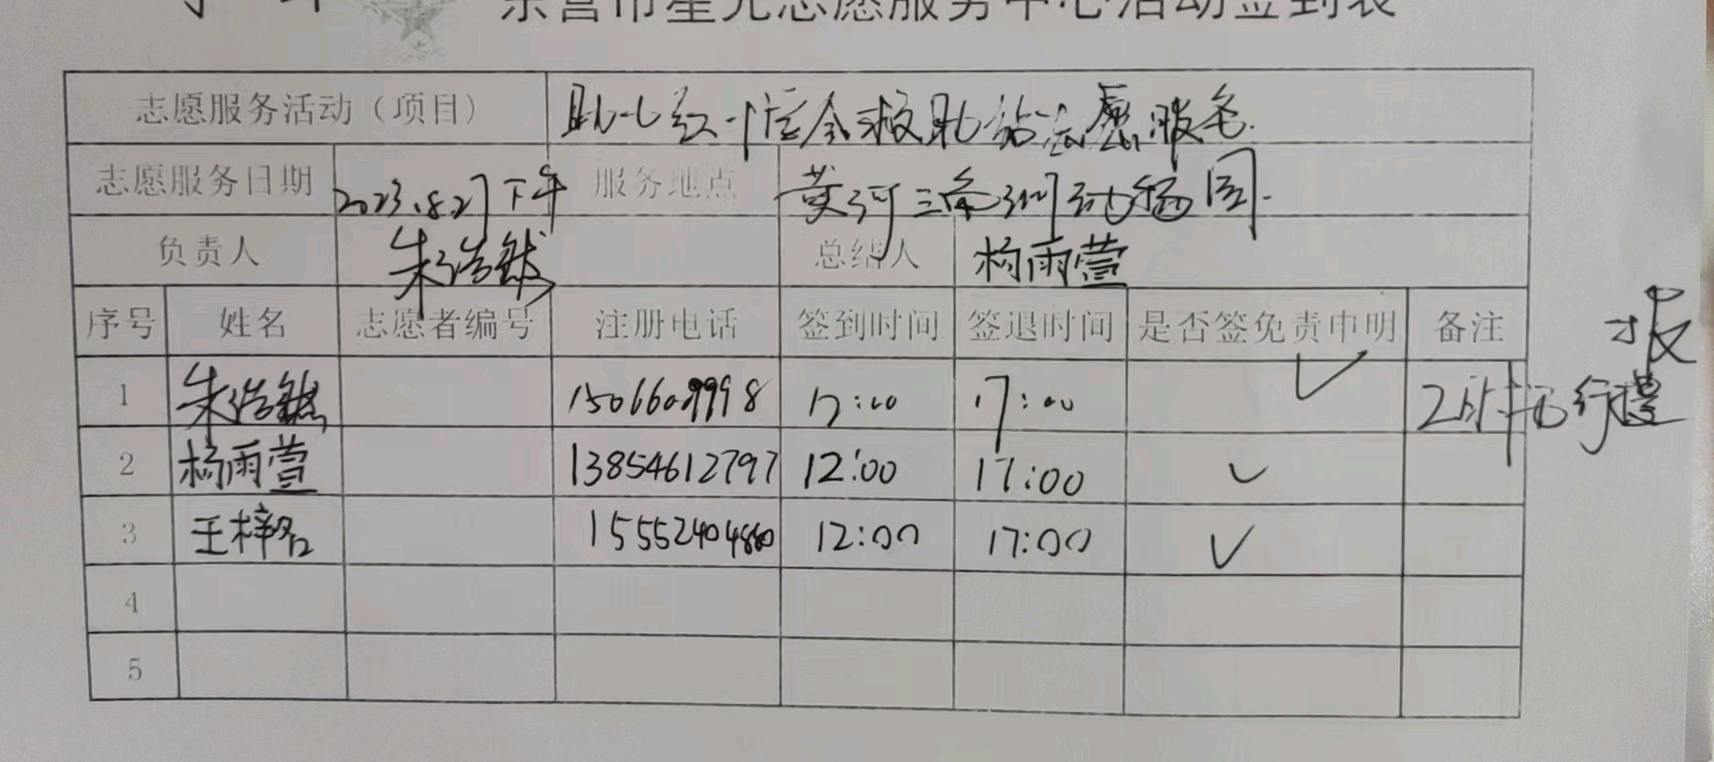 东营市星光志愿服务中心活动签到表
志愿服务活动（项目） 红十字会救助站志愿服务.
志愿服务日期 2023.8.27下午 服务地点 黄河三角洲动物园.
负责人 朱浩然 总结人 杨雨萱
序号 姓名 志愿者编号 注册电话 签到时间 签退时间 是否签免责申明 备注
1 朱浩然 12:00 17:00 ✓
2 杨雨萱 13854612797 12:00 17:00 ✓
3 王梓名 12:00 17:00 ✓
4
5